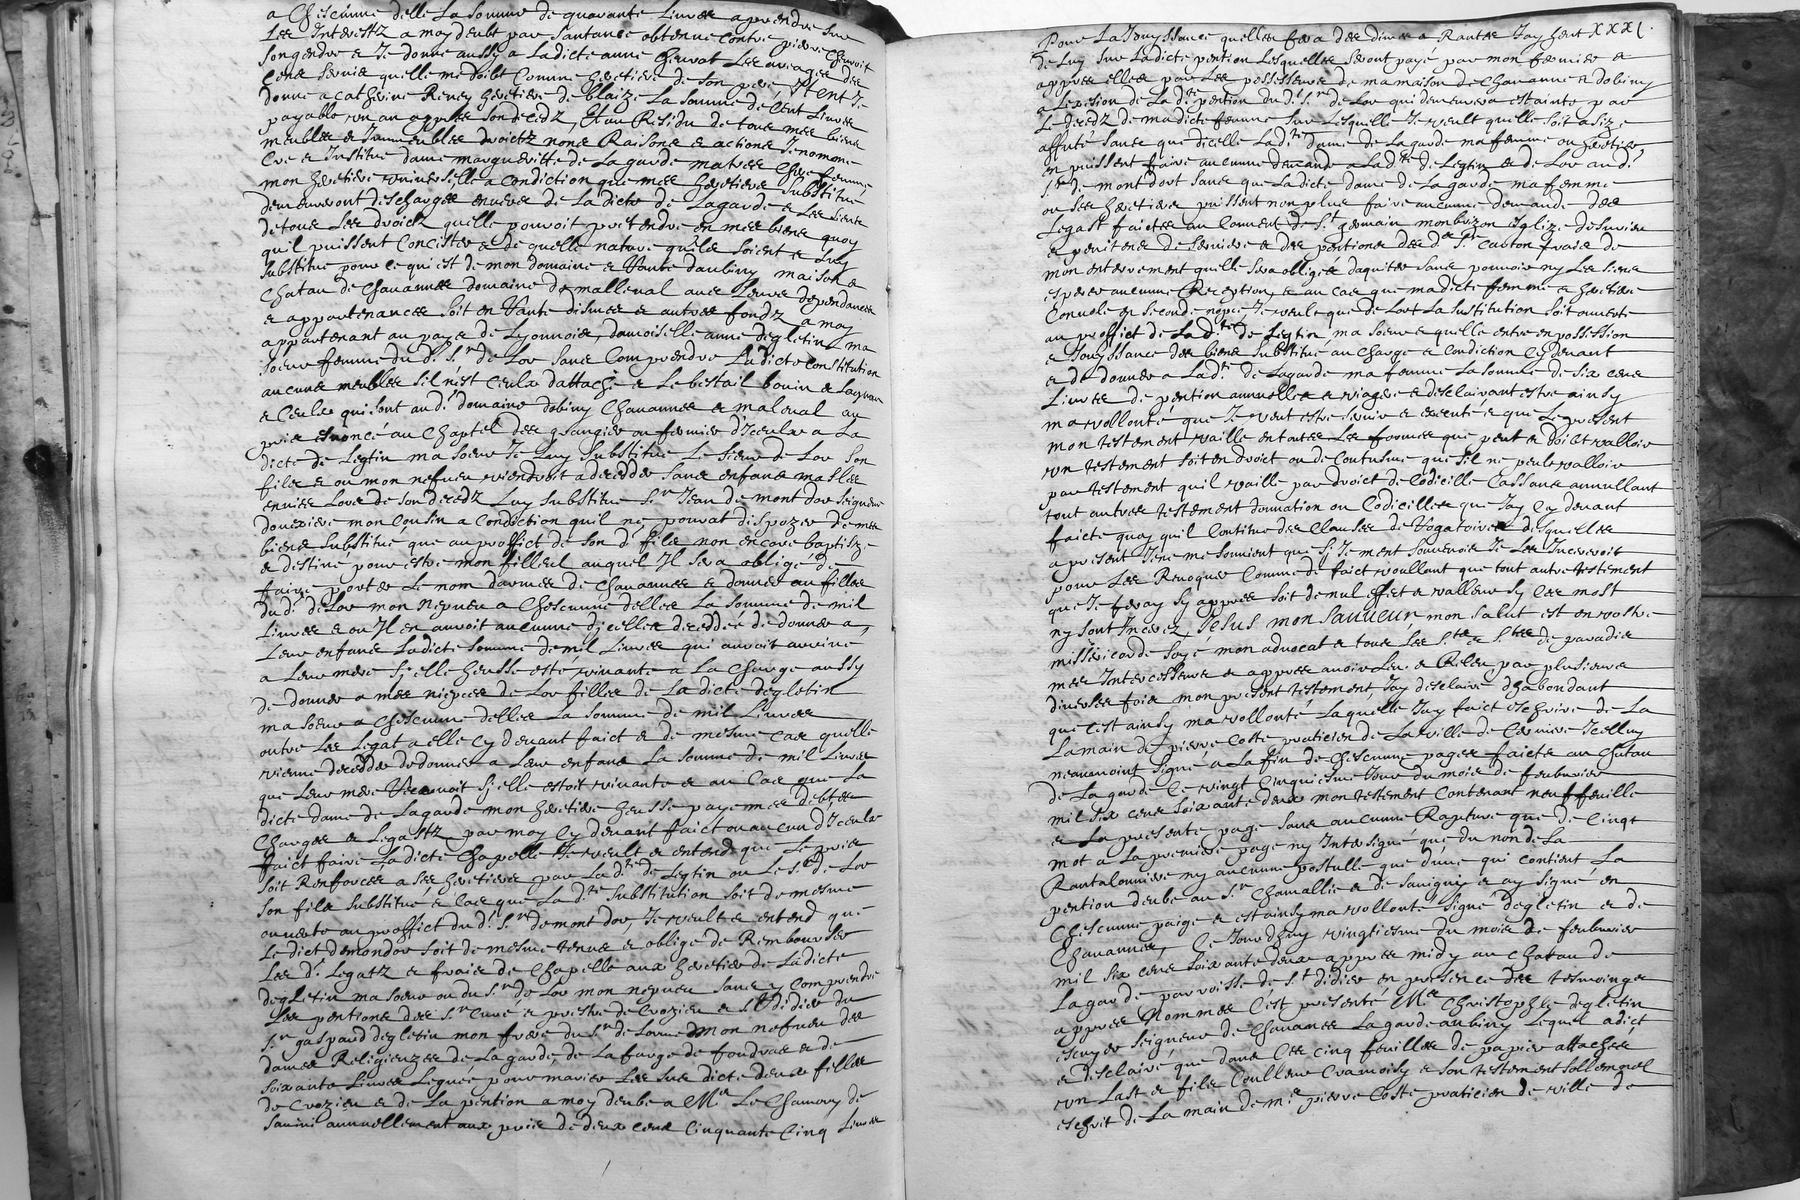 a Chescunne delle La Somme de quarante Livres a prendre sur
Les Interestz a moy deubt par Santance obtenue contre pierre Chervoit
Songendre & Je donne aussy a Ladicte anne Chervat Les arrages des
Cens Servis quelle me doibt Comme heretiere de Son pere, Ytent Je
donne a catherine Reney heretiere de blaize La Somme de Cent Livres
payable un an appres Son decedz, Et au Residu de tous mes biens
meubles & Immeubles droictz noms Raisons & actions Je nomme
Cre & Institue dame margueritte de La garde ma tres Chere femme
mon heretiere universselle a condiction que mes heretiers Substitue
demeureront deschargee envers de La dicte de Lagarde & Les Siens
de tous Les droicts quelle pouroit pretendre en mes biens quoy
quil puissent Concister & de quelle nature quils Soient & Luy
Substitue pour ce qui est de mon domaine & Rante daubiny maison &
Chatau de Chavannes domaine de malleval aves Leures dependances
& appartenances Soit en Rante dismes & autres fondz a moy
appartenant au pays de Lyonnois, damoiselle anne degletin ma
Soeur femme du d. S.r de Lor Sans Comprendre Ladicte Constitution
aucuns meubles Sil n'est Ceulx dattache & Le bestail bouin &
& Ceulx qui Sont au d. domaine dobiny Chavannes & maleval au
prix enoncé au Chaptel des grangier ou fermier d'Iceulx a La
dicte de Legtin ma Soeur Je Luy Substitue Le Sieur de Lor Son
fils & ou mon nefueu viendroit a decedder Sans enfans masles
en vies Lors de Son decedz Luy Substitue S.r Jean de mont dor Seigneur
mon Cousin a Condiction quil ne pourat dispozer de mes
biens Substitue que au proffict de Son d. fils non encore baptisze
& destine pour estre mon filleul auquel Il Sera obligé de
faire porter Le nom darmes de Chavannes & donner au filles
du d. de Lor mon Nepveu a Chescunne delles La Somme de mil
Livres & ou Il en auroit aucunne dJcelles decedder de donner a
Leur enfans Ladicte Somme de mil Livres qui auroit arrive
a Leur mere Sj elle heusse este vivante a La Charge aussy
de donner a mes niepces de Lor filles de La dicte degletin
ma Soeur a Chescunne delles La Somme de mil Livres
outre Les Legat a elle Cy devant faict & de mesme Cas quelle
vienne decedder de donner a Leur enfans La Somme de mil Livres
que Leur mere Recevroit Sj elle estoit vivante & au Cas que La
dicte dame de Lagarde mon heretiere heusse paye mes debtes
Charges & Legastz par moy Cy devant faict ou aucun d'Iceulx
faict faire Ladicte Chapelle Je veult & entend que Le prix
Soit Renforces a Ses heretiers par La d.te de Legtin ou Le S.r de Lor
Son fils Substitué & Cas que La d.te Substitution Soit de mesme
ouverte au proffict du d. S.r de mont dor, Je veult & entend que
Le dict demondor Soit de mesme tenue & oblige de Rembourser
Les d. Legatz & frais de Chapelle aux heretiers de Ladicte
degletin ma Soeur ou du S.r de Lor mon nepveu Sans y Comprendre
Les pentions des S.r Cure & prestre de Crozieu & S.t didier du
S.r gaspard degletin mon frere du S.r de Lorme mon nefueu des
dames Religieuzes de La garde, de La farge de foudras & de
Soixante Livres Leguée pour marier Les Sus dicte deux filles
de Crozieu & de La pention a moy deube a M.r Le Chamory de
Savini annuellement aux prix de deux Cens Cinquante Cinq Livres
Pour La Jouyssance quelles fera des dimes & Rantes Jay heut XXXI.
de Luy Sur La dicte pention Lesquelles Seront payé par mon fermier &
appres elles par Les possesseurs de ma maison de Chavannes & dobiny
a Lexesion de La d.te pention du d. S.r de Lor qui demeurera estainte par
Le decedz de madicte femme Sur Lesquelle Je veult quelle Soit asize
affuté Sans que dicelle La d.te dame de Lagarde ma femme ou heretiers
en puissent faire aucunne demande a La d.te de Legtin & de Lor au d.
S.r de mont dort Sans que Ladicte dame de Lagarde ma femme
ou Ses heretiers puissent non plus faire aucunne demande des
Legast faictes au Couvent de S.t germain monbrizon Eglize de Surieu
& penitens de & des portions des d. S.r frais de
mon enterrement quelle Sera obligée daquiter Sans pouvoir ny Les Siens
esperer aucunne Exception, & au Cas que madicte femme & heretiere
Convole en Seconde nopce Je veult que de Lors La Sustitution Soit ouverte
au proffict de La d.te de Legtin, ma Soeur & quelle entre en possession
& Jouyssance des biens Substitue au Charge & Condiction Cy devant
& de donner a La d.te de Lagarde ma femme La Somme de Six cens
Livres de pention annuelle & viagere & desclairant estre ainsy
ma vollonté que Je veut estre Suivie & exexuté & que Le present
mon testement vaille en toutes Les formes que peut & doibt valloir
un testement Soit en droict ou de Coutusme que Sil ne peult valloir
par testement quil vaille par droict de Codicille Cassans annullant
tout autres testement donnation ou Codicilles que Jay Cy devant
faicte quoy quil Contitue des Clauses de Rogatoires desquelles
a present Je ne me Souvient que Sj Je ment Souvenois Je Les Incererois
pour Les Revoquer Comme de faict voullant que tout autre testement
que Je feray Sy appres Soit de nul effect & valleur Sy Ces most
ny Sont Incerez, Jesus mon Sauveur mon Salut est en vostre
missericorde Soye mon advocat & tous Les S.ts & S.tes de paradis
mes Intercesseurs & appres avoir Leu & Releu par plusieurs
diverses fois mon present testement Jay desclaire dhabondant
que Cest ainsy ma vollonté Laquelle Jay faict eschrire de La
La main de pierre Coste praticien de La ville de Cerviere Icelluy
neaumoint Signé a La fin de Chescunne pages faicte au Chatau
de La garde Ce vingt Cinquiesme Jour du mois de feubvrier
mil Six cens Soixante deux mon testement Contenant neuf feuille
& La presente page Sans aucunne Rapture que de Cinqt
mot a La premiere page ny Intersigné que du non de La
Rantalonniere ny aucunne postulle que dune qui contient La
pention deube au S.r Chamallie & de Savigniy & ay Signé en
Chescunne paige & est ainsy ma vollonté Signe degletin & de
Chavannes, Ce Jourdhuy vingtiesme du mois de feubvrier
mil Six cens Soixante deux appres midy au chatau de
La garde parroisse de S.t didier en presence des tesmoings
appres Nommés C'est presenté M.re Christophle degletin
escuyer Seigneur de Chavanes La garde aubiny Lequel a dict
& desclairé que dans Ces cinq feuilles de papier attachees
un Last & filet Coulleur Cramoisy & Son testement Sollempnel
eschrit de La main de m.e pierre Coste praticien de ville de